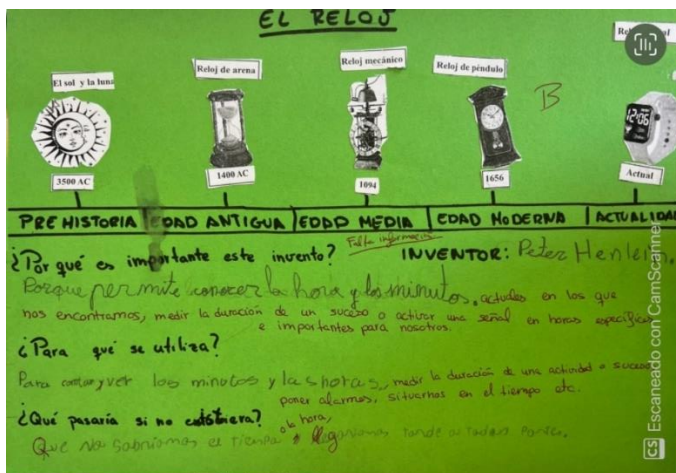 EL RELOJ
El sol y la luna
Reloj de arena
Reloj mecánico
Reloj de péndulo
B
12:06
3500 AC
1400 AC
1094
1656
Actual
PREHISTORIA EDAD ANTIGUA EDAD MEDIA EDAD MODERNA ACTUALIDA
Falta información
¿Por qué es importante este invento? INVENTOR: Peter Henlein.
Porque permite conocer la hora y los minutos, actuales en los que
nos encontramos, medir la duración de un suceso o activar una señal en horas específicas
e importantes para nosotros.
¿Para qué se utiliza?
Para contar y ver los minutos y las horas, medir la duración de una actividad o suceso
poner alarmas, situarnos en el tiempo etc.
¿Qué pasaría si no existiera?
o la hora,
Que no sabríamos el tiempo y llegaríamos tarde a todas partes.
CS Escaneado con CamScanner